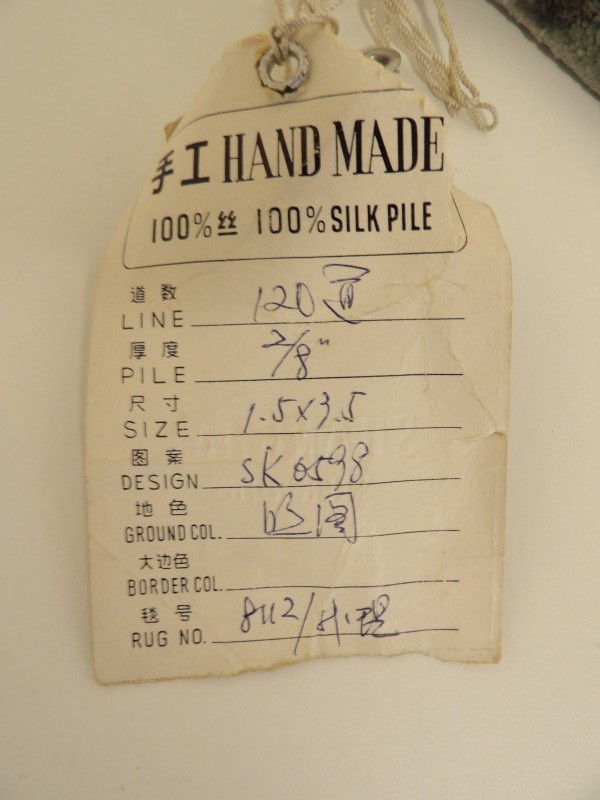 手工 HAND MADE
100%丝 100% SILK PILE
道数
LINE 120道
厚度
PILE 2/8"
尺寸
SIZE 1.5x3.5
图案
DESIGN SK0598
地色
GROUND COL.
大边色
BORDER COL.
毯号
RUG NO. 8112/